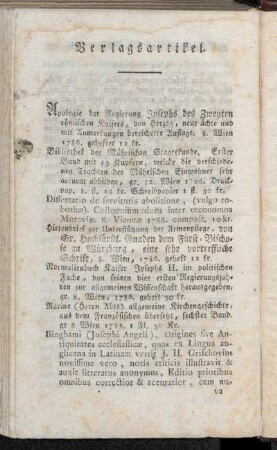 Verlagsartikel.
Apologie der Regierung Josephs des Zweyten
römischen Kaisers, von Herzog, neue ächte und
mit Anmerkungen bereicherte Auflage. 8. Wien
1786. geheftet 12 kr.
Bibliothek der Mährischen Staatskunde, Erster
Band mit 13 Kupfern, welche die verschiede-
nen Trachten der Mährischen Einwohner sehr
accurat abbilden, gr. 12. Wien 1786. Druck-
pap. 1. fl. 15 kr. Schreibpapier 1 fl. 30 kr.
Dissertatio de servitutis abolitione, (vulgo ro-
bothæ). Colloquium duos inter œconomos
Moraviæ. 8. Viennæ 1786. compact, 10 kr.
Hirtenbrief zur Unterstützung der Armenpflege, von
Sr. Hochfürstl. Gnaden dem Fürst-Bischo-
fe zu Würzburg, eine sehr vortreffliche
Schrift, 8. Wien, 1786. geheft 12 kr.
Normalienbuch Kaiser Josephs II. im politischen
Fache, von seinen vier ersten Regierungsjah-
ren zur allgemeinen Wissenschaft herausgegeben,
gr. 8. Wien, 1786. geheft 30 kr.
Racine (Herrn Abts) allgemeine Kirchengeschichte,
aus dem Französischen übersetzt, sechster Band.
gr 8 Wien 1785. 1 Fl. 30 Kr.
Binghami (Josephi Angeli), Origines sive An-
tiquitates ecclesiasticæ, quas ex Lingua an-
glicana in Latinam vertit J. H. Grischovius
novissime vero, notis criticis illustravit &
auxit litteratus anonymus, Editio prioribus
omnibus correctior & accuratior, cum no-
va